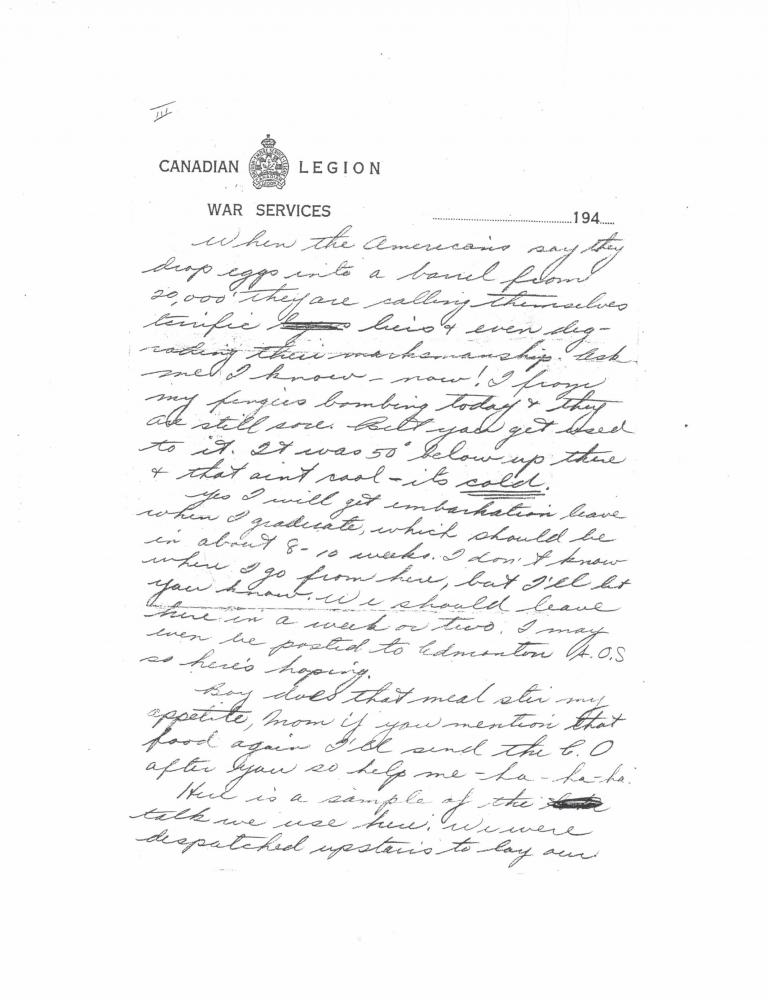 III
CANADIAN LEGION
WAR SERVICES
194
When the Americans say they
drop eggs into a barrel from
20,000' they are calling themselves
terrific liers & even deg-
rading their marksmanship. Ask
me I know - now! I froze
my fingers bombing today & they
are still sore. But you get used
to it. It was 50° below up there
& that aint cool - its cold.
Yes I will get embarkation leave
when I graduate, which should be
in about 8-10 weeks. I don't know
where I go from here, but I'll let
you know. We should leave
here in a week or two. I may
even be posted to Edmonton A.O.S
so here's hoping.
Boy does that meal stir my
appetite, Mom if you mention that
food again I'll send the C.O
after you so help me - ha - ha - ha.
Here is a sample of the
talk we use here. We were
despatched upstairs to lay our